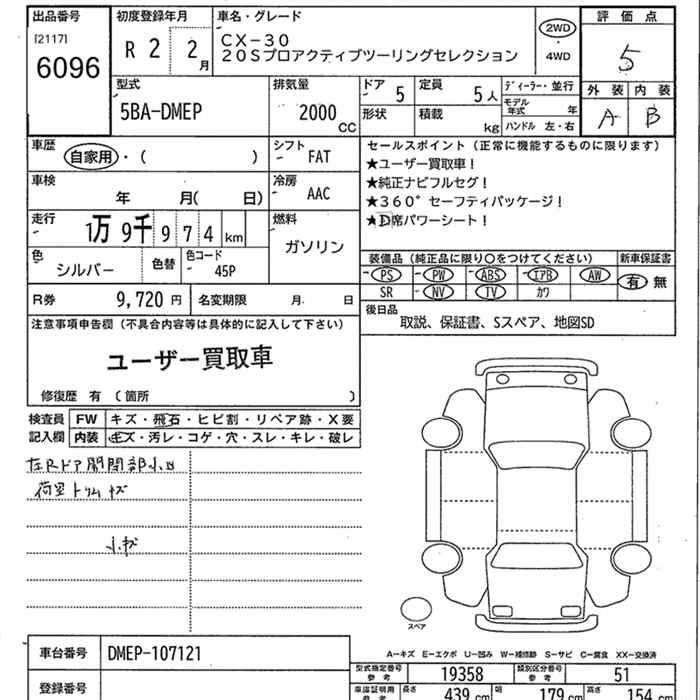 出品番号 初度登録年月 車名・グレード 評価点
[2117] 6096 R 2 2月 CX-30 2WD・4WD 5
20Sプロアクティブツーリングセレクション
型式 排気量 ドア 定員 ディーラー・並行 外装 内装
5BA-DMEP 2000 CC 5 5人 モデル年式 年 A B
形状 積載 kg ハンドル 左・右
車歴 自家用・( ) シフト FAT
セールスポイント(正常に機能するものに限ります)
★ユーザー買取車!
★純正ナビフルセグ!
★360°セーフティパッケージ!
★D席パワーシート!
車検 年 月( 日) 冷房 AAC
走行 1万9千974km 燃料 ガソリン
色 シルバー 色替 色コード 45P
装備品(純正品に限り○をつけてください) 新車保証書
PS PW ABS エアB AW 有 無
SR NV TV カワ
R券 9,720円 名変期限 月 日
後日品
取説、保証書、Sスペア、地図SD
注意事項申告欄(不具合内容等は具体的に記入して下さい)
ユーザー買取車
修復歴 有(箇所 )
検査員記入欄
FW キズ・飛石・ヒビ割・リペア跡・X要
内装 キズ・汚レ・コゲ・穴・スレ・キレ・破レ
左Rドア開閉部小凹
荷室トリムキズ
小キズ
スペア
A-キズ E-エクボ U-凹み W-補修跡 S-サビ C-腐食 XX-交換済
車台番号 DMEP-107121
型式指定番号 参考 19358 類別区分番号 参考 51
登録番号
車庫証明用 参考 長さ 439cm 幅 179cm 高さ 154cm